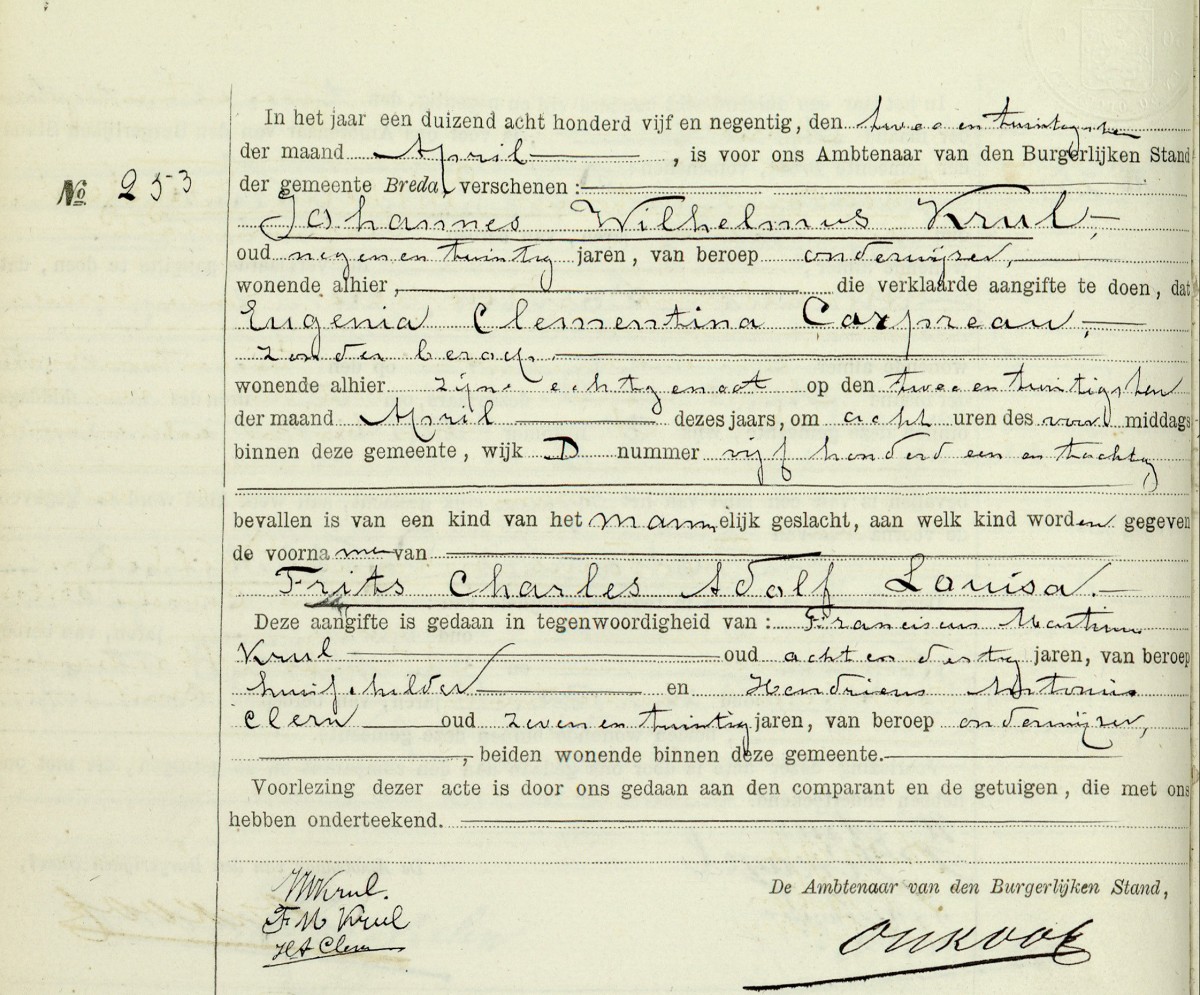 In het jaar een duizend acht honderd vijf en negentig, den twee en twintigsten
der maand April, is voor ons Ambtenaar van den Burgerlijken Stand
№ 253
der gemeente Breda, verschenen:
Johannes Wilhelmus Krul,
oud negen en twintig jaren, van beroep onderwijzer,
wonende alhier, die verklaarde aangifte te doen, dat
Eugenia Clementina Carpreau,
zonder beroep.
wonende alhier zijne echtgenoot op den twee en twintigsten
der maand April dezes jaars, om acht uren des voor middags
binnen deze gemeente, wijk D nummer vijf honderd een en tachtig
bevallen is van een kind van het mannelijk geslacht, aan welk kind worden gegeven
de voornamen van
Frits Charles Adolf Louisa.
Deze aangifte is gedaan in tegenwoordigheid van: Franciscus Martinus
Krul oud acht en dertig jaren, van beroep
huisschilder en Hendricus Antonius
Clern oud zeven en twintig jaren, van beroep onderwijzer,
, beiden wonende binnen deze gemeente.
Voorlezing dezer acte is door ons gedaan aan den comparant en de getuigen, die met ons
hebben onderteekend.
De Ambtenaar van den Burgerlijken Stand,
JWKrul.
F M Krul
HA Clern